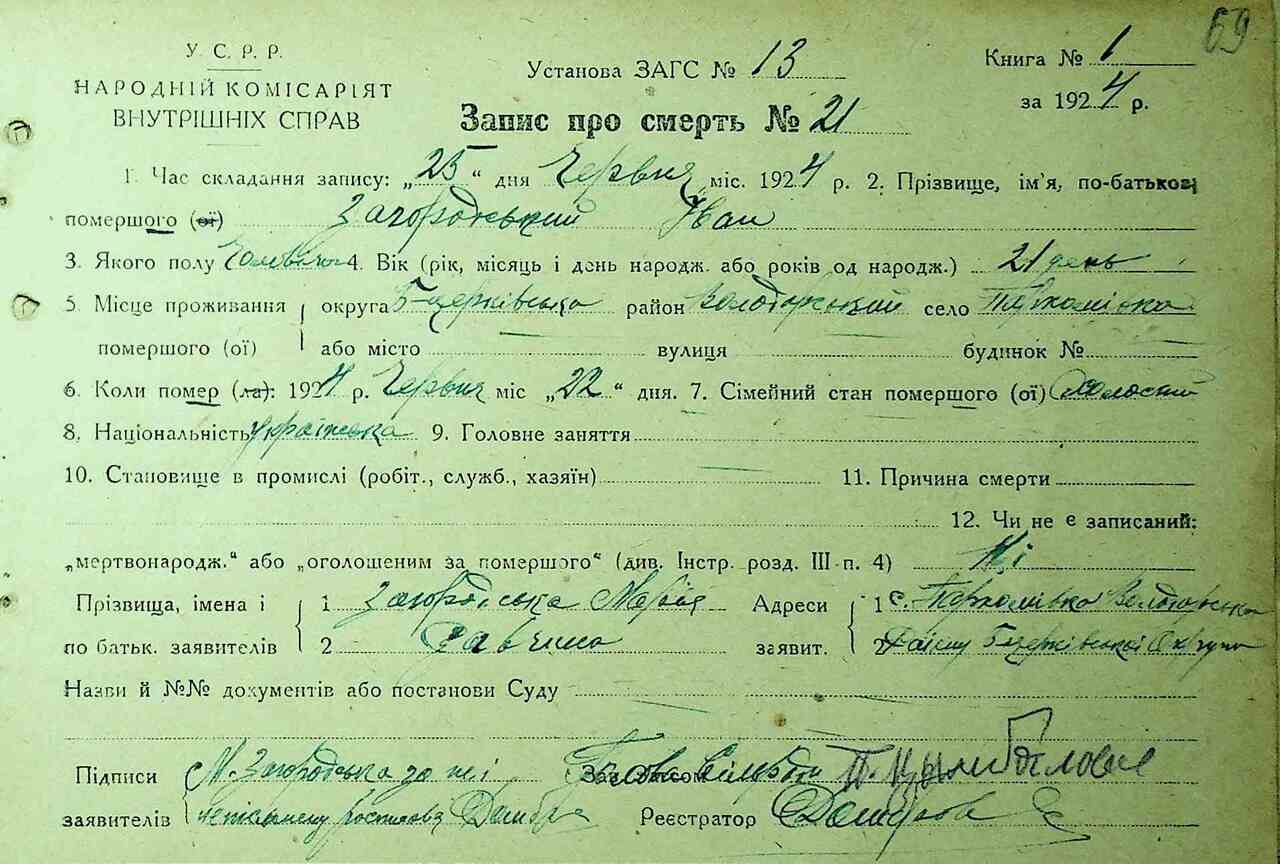 69
У. С. Р. Р.
НАРОДНІЙ КОМІСАРІЯТ
ВНУТРІШНІХ СПРАВ
Установа ЗАГС № 13
Книга № 1
за 1924 р.
Запис про смерть № 21
1. Час складання запису: „25“ дня Червня міс. 1924 р. 2. Прізвище, ім'я, по-батькові
помершого (ої) Загородський Іван
3. Якого полу Чоловічого 4. Вік (рік, місяць і день народж. або років од народж.) 21 день
5. Місце проживання округа Б-церківська район Володарський село Пархомівка
помершого (ої) або місто вулиця будинок №
6. Коли помер (ла): 1924 р. Червня міс „22“ дня. 7. Сімейний стан помершого (ої) Холостий
8. Національність Українська 9. Головне заняття
10. Становище в промислі (робіт., служб., хазяїн) 11. Причина смерти
12. Чи не є записаний:
„мертвонародж.“ або „оголошеним за помершого“ (див. Інстр. розд. III п. 4) Ні
Прізвища, імена і 1 Загородська Марія Адреси 1 с. Пархомівка Володарськ
по батьк. заявителів 2 Савчина заявит. 2 Району Б-церківської Округи
Назви й №№ документів або постанови Суду
Підписи М. Загородська за неї Голова
заявителів неписьменну Реєстратор